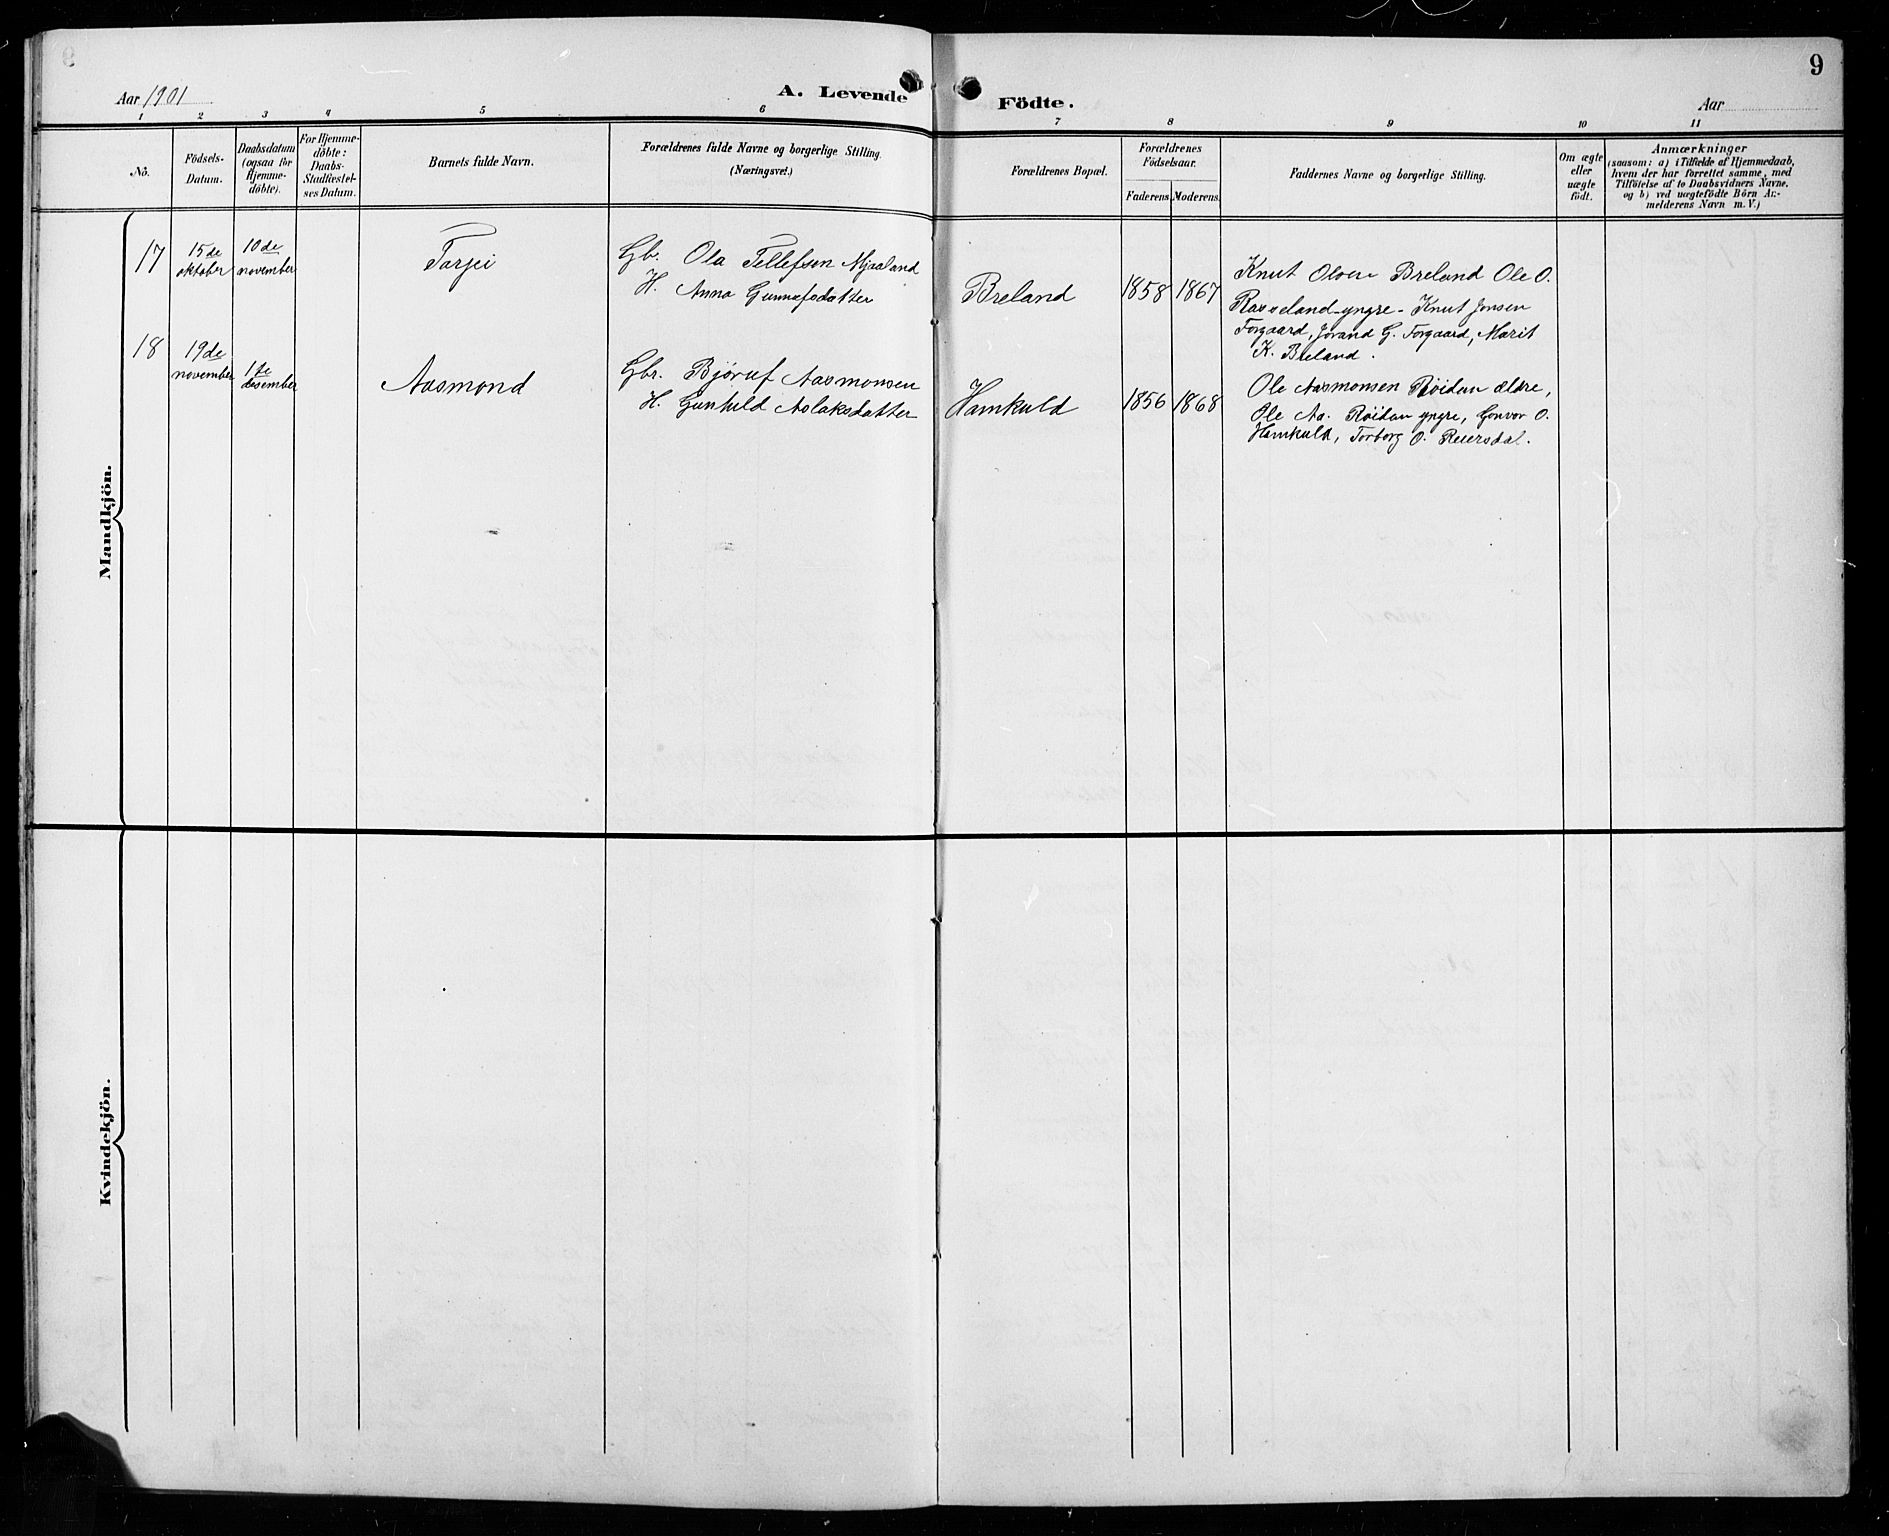 9
Aar 1901
A. Levende Födte.
Aar
1 2 3 4 5 6 7 8 9 10 11
No.
Födsels-
Datum.
Daabsdatum
(ogsaa for
Hjemme-
döbte).
For Hjemme-
döbte:
Daabs-
Stadfestel-
ses Datum.
Barnets fulde Navn.
Forældrenes fulde Navne og borgerlige Stilling.
(Næringsvei.)
Forældrenes Bopæl.
Forældrenes
Födselsaar.
Faderens
Moderens.
Faddernes Navne og borgerlige Stilling.
Om ægte
eller
uægte
födt.
Anmærkninger
(saasom: a) i Tilfælde af Hjemmedaab,
hvem der har forrettet samme, med
Tilföielse af to Daabsvidners Navne,
og b) ved uægtefödte Börn An-
melderens Navn m. V.)
Mandkjön.
17
15de
oktober
10de
november
Torjei
Gb. Ola Tellefsen Mjaaland
H. Anna Gunnufsdatter
Breland
1858
1867
Knut Olsen Breland Ole O.
Rosseland yngre - Knut Jonsen
Forgaard, Jorand G. Forgaard, Marit
K. Breland.
18
19de
november
1ste
desember
Aasmond
Gbr. Bjøruf Aasmonsen
H. Gunhild Aslaksdatter
Homkuld
1856
1868
Ole Aasmonsen Røidan ældre,
Ole Aa. Røidan yngre, Gonvor O.
Homkuld, Torborg O. Reiersdal.
Kvindekjön.